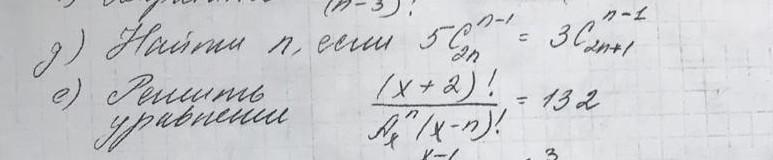 (n-3)!
д) Найти n, если 5C_{2n}^{n-1} = 3C_{2n+1}^{n-1}
е) Решить уравнении (x+2)! / A_x^n (x-n)! = 132
x-1 3